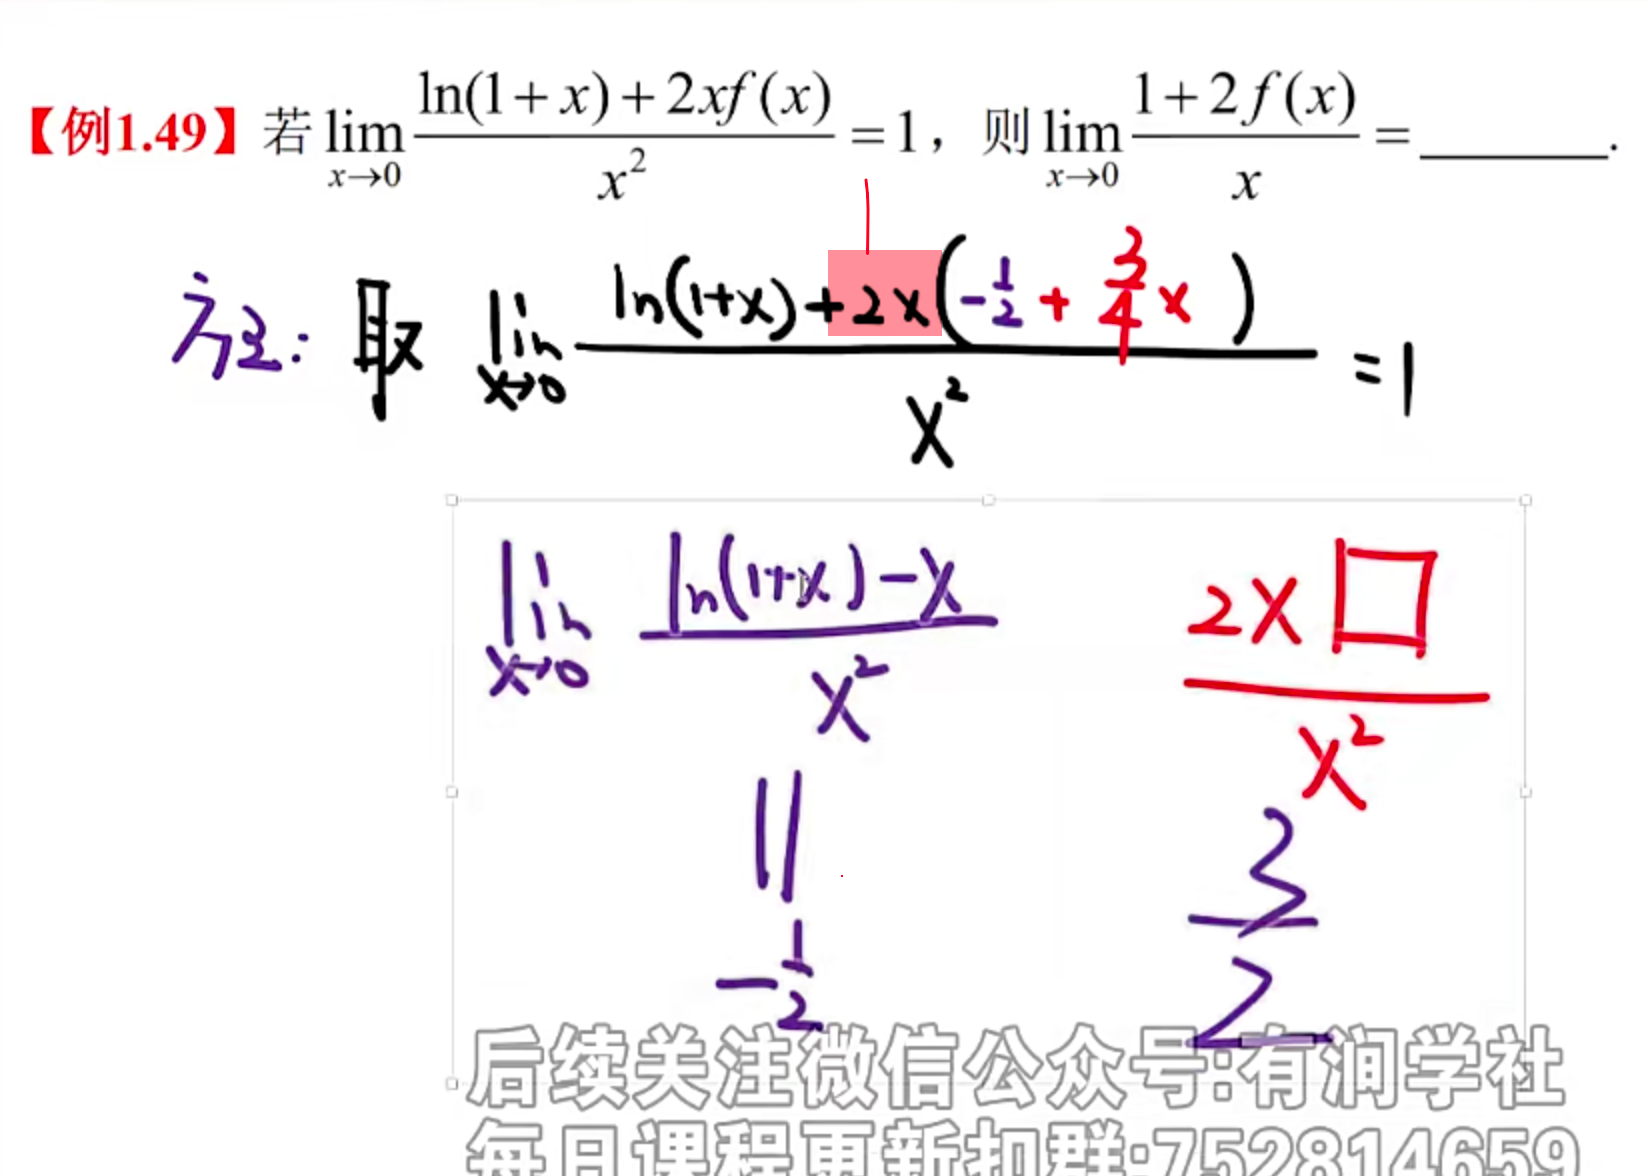 【例1.49】若 lim x→0 (ln(1+x)+2xf(x))/x² = 1，则 lim x→0 (1+2f(x))/x = ______.
方法: 取 lim x→0 (ln(1+x)+2x(-1/2 + 3/4 x))/x² = 1
lim x→0 (ln(1+x)-x)/x² 2x□/x²
|| 3/2
-1/2
后续关注微信公众号:有润学社
每日课程更新扣群:752814659